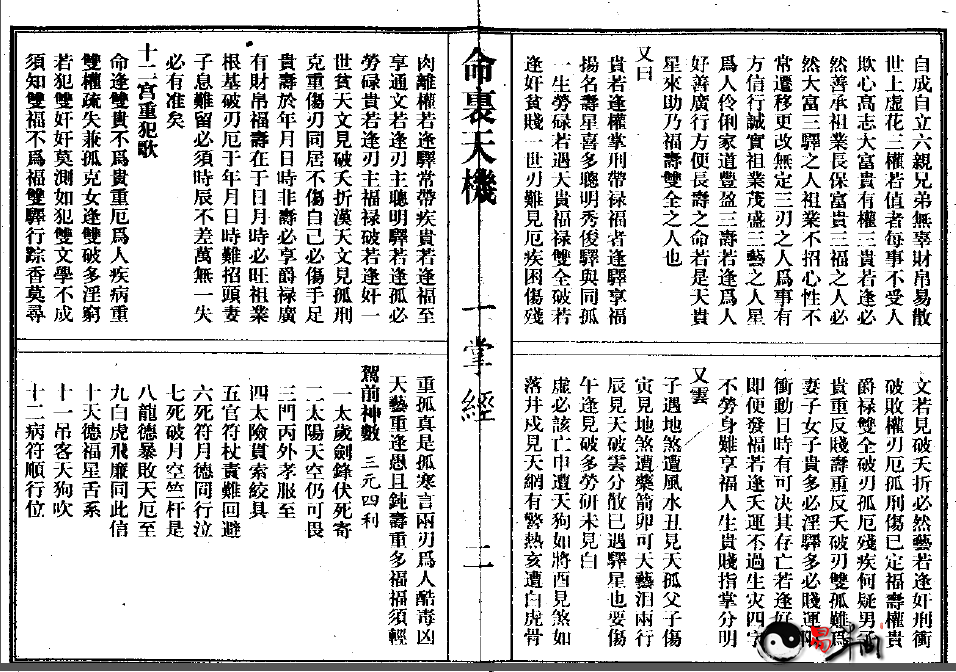 自成自立六親兄弟無辜財帛易散
世上虛花二權若值者每事不受人
欺心高志大富貴有權二貴若逢必
然善承祖業長保富貴二福之人必
然大富二驛之人祖業不招心性不
常遷移更改無定三刃之人爲事有
方信行誠實祖業茂盛三藝之人星
爲人伶俐家道豐盈三壽若逢爲人
好善廣行方便長壽之命若是天貴
星來助乃福壽雙全之人也
又曰
貴若逢權掌刑帶禄福者逢驛享福
揚名壽星喜多聰明秀俊驛與同孤
一生勞碌若遇大貴福禄雙全破若
逢奸貧賤一世刃難見厄疾困傷殘
文若見破夭折必然藝若逢奸刑衝
破敗權刃厄孤刑傷已定福壽權貴
爵禄雙全破刃孤厄殘疾何疑男
貴重反賤壽重反夭破刃雙孤難爲
妻子女子貴多必淫驛多必賤運限
衝動日時有可决其存亡若逢好
即便發福若逢夭運不過生灾四字
不勞身難享福人生貴賤指掌分明
又雲
子遇地煞遭風水丑見天孤父子傷
寅見地煞遭藥箭卯可天藝泪兩行
辰見天破雲分散巳遇驛星也要傷
午逢見破多勞研未見白
虚必該亡申遭天狗如將酉見煞如
落井戌見天網有驚熱亥遭白虎骨
命裏天機
一掌經
三
肉離權若逢驛常帶疾貴若逢福至
享通文若逢刃主聰明驛若逢孤必
勞碌貴若逢刃主福禄破若逢奸一
世貧天文見破夭折漢天文見孤刑
克重傷刃同居不傷自己必傷手足
貴壽於年月日時非壽必享爵禄廣
有財帛福壽在于日月時必旺祖業
根基破刃厄于年月日時難招頭妻
子息難留必須時辰不差萬無一失
必有准矣
十二宫重犯歌
命逢雙貴不爲貴重厄爲人疾病重
雙權疏失兼孤克女逢雙破多淫窮
若犯雙奸奸莫測如犯雙文學不成
須知雙福不爲福雙驛行踪香莫尋
重孤真是孤寒言兩刃爲人酷毒凶
天藝重逢愚且鈍壽重多福福須輕
駕前神數 三元四利
一太歲劍鋒伏死寄
二太陽天空仍可畏
三門丙外孝服至
四太險貫索絞具
五官符杖責難回避
六死符月德同行泣
七死破月空竺杆是
八龍德暴敗天厄至
九白虎飛廉同此信
十天德福星舌系
十一吊客天狗吠
十二病符順行位